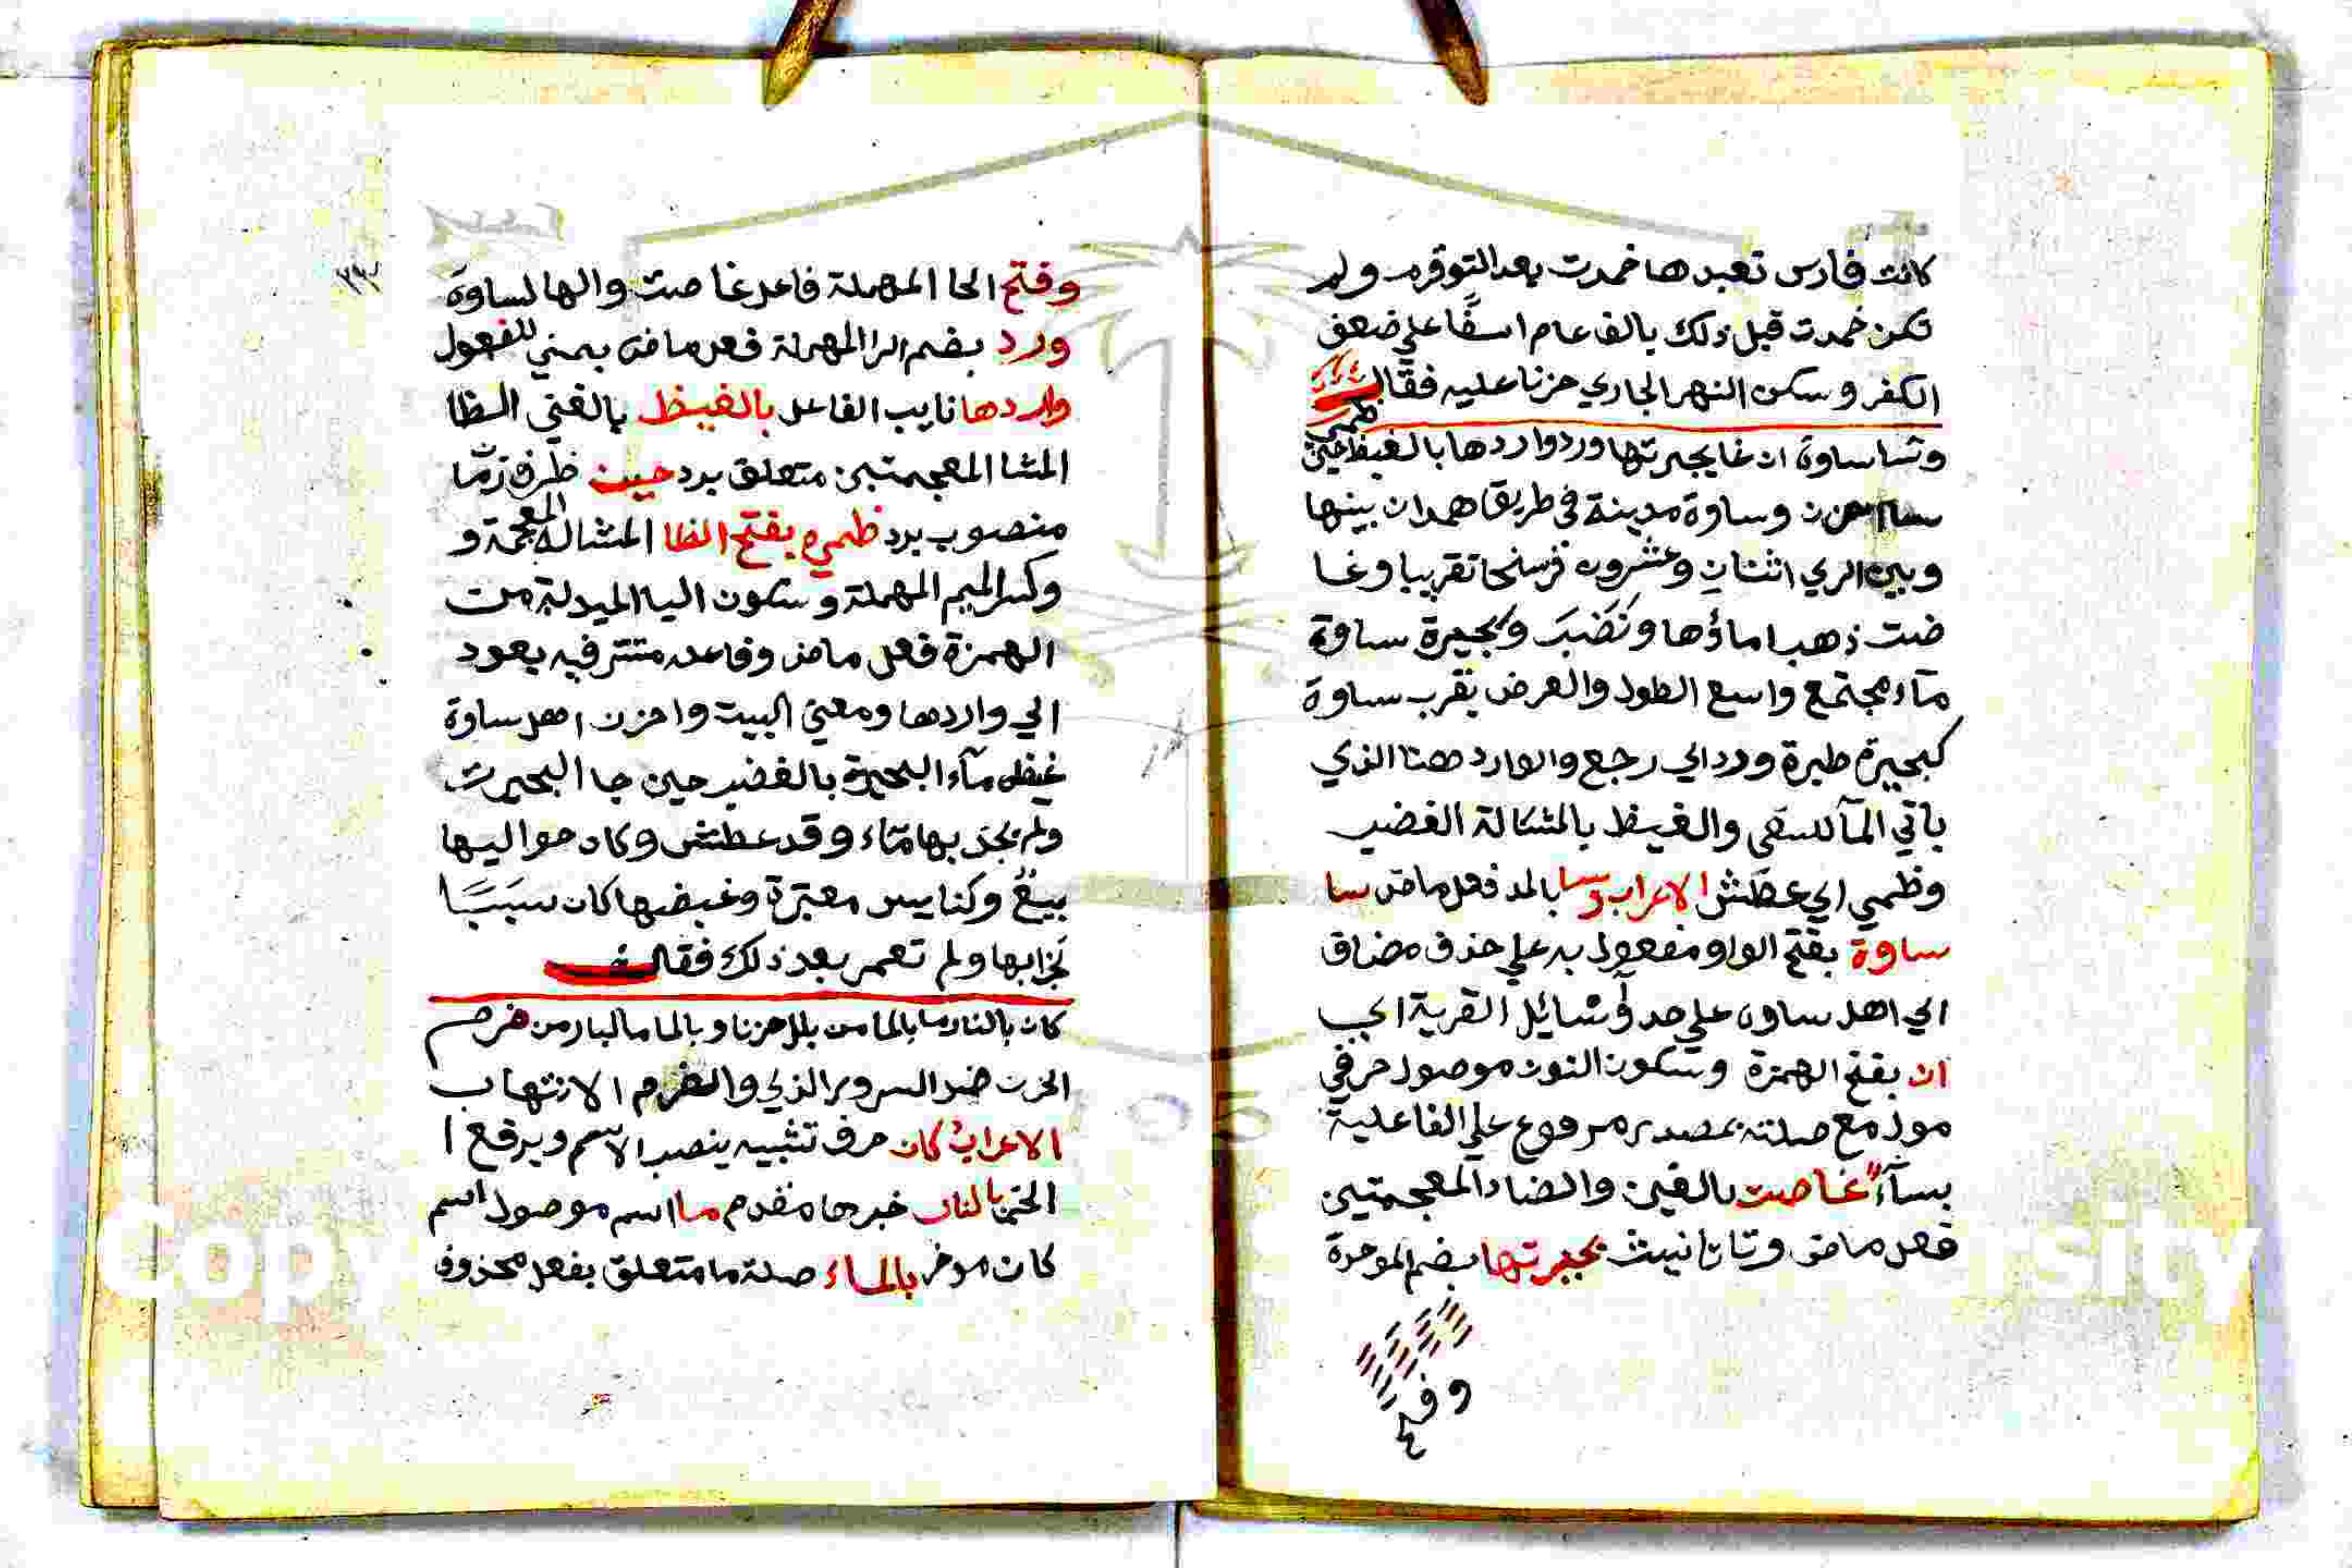 كانت فارس تعبدها خمدت بعد التوقد ولم
تكن خمدت قبل ذلك بالف عام اسفًا علي ضعف
الكفر وسكن النهر الجاري حزنا عليه فقال
وسا ساوة ان غا بحيرتها ورد واردها بالغيظ حين ظمي
وساوة مدينة في طريق همدان بينها
وبين الري اثنتان وعشرون فرسخا تقريبا وغا
ضت ذهب ماؤها ونَضَبَ وبحيرة ساوة
مآء مجتمع واسع الطول والعرض بقرب ساوة
كبحيرة طبرة ورد اي رجع والوارد هنا الذي
ياتي المآ للسقي والغيظ بالمشالة الغضب
وظمي اي عطش الاعراب وسا بالمد فعل ماض سا
ساوة بفتح الواو مفعول به علي حذف مضاف
اي اهل ساوة علي حد وسائل القرية اي
ان بفتح الهمزة وسكون النون موصول حرفي
مول مع صلته بمصدر مرفوع علي الفاعلية
بسآء غاصت بالغين والضاد المعجمتين
فعل ماض وتا تانيث بحيرتها بضم الموحدة
وفتح
وفتح الحا المهملة فاعل غاصت والها لساوة
ورد بضم الرا المهملة فعل ماض بمبني للمفعول
واردها نايب الفاعل بالغيظ بالغين الظا
المشا المعجمتين متعلق برد حين ظرف زمان
منصوب برد ظمي بفتح الظا المشالة المعجمة و
وكسر الميم المهملة وسكون اليا المبدلة من
الهمزة فعل ماض وفاعله مستتر فيه يعود
الي واردها ومعني البيت واحزن اهل ساوة
غيظ مآء البحيرة بالغضب حين جا البحيرت
ولم يجد بها مآء وقد عطش وكان حواليها
بيعٌ وكنايس معتبرة وغيضها كان سَبَبًا
لخرابها ولم تعمر بعد ذلك فقال
كان بالنار ما بالما من بلل حزنا وبالما ما بالنار من ضرم
الحزن ضد السرور الذي والضرم الالتهاب
الاعراب كان حرف تشبيه ينصب الاسم ويرفع ا
الخبر بالنار خبرها مقدم ما اسم موصول اسم
كان موخر بالماء صلة ما متعلق بفعل محذوف